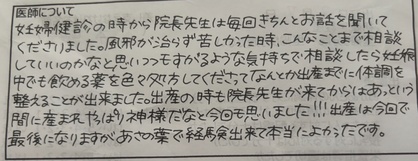 医師について
妊婦健診の時から院長先生は毎回きちんとお話を聞いて
くださいました。風邪が治らず苦しかった時、こんなことまで相談
していいのかなと思いつつもすがるような気持ちで相談したら妊娠
中でも飲める薬を色々処方してくださってなんとか出産までに体調を
整えることが出来ました。出産の時も院長先生が来てからはあっという
間に産まれやっぱり神様だなと今回も思いました!!!出産は今回で
最後になりますがあさの葉で経験出来て本当によかったです。